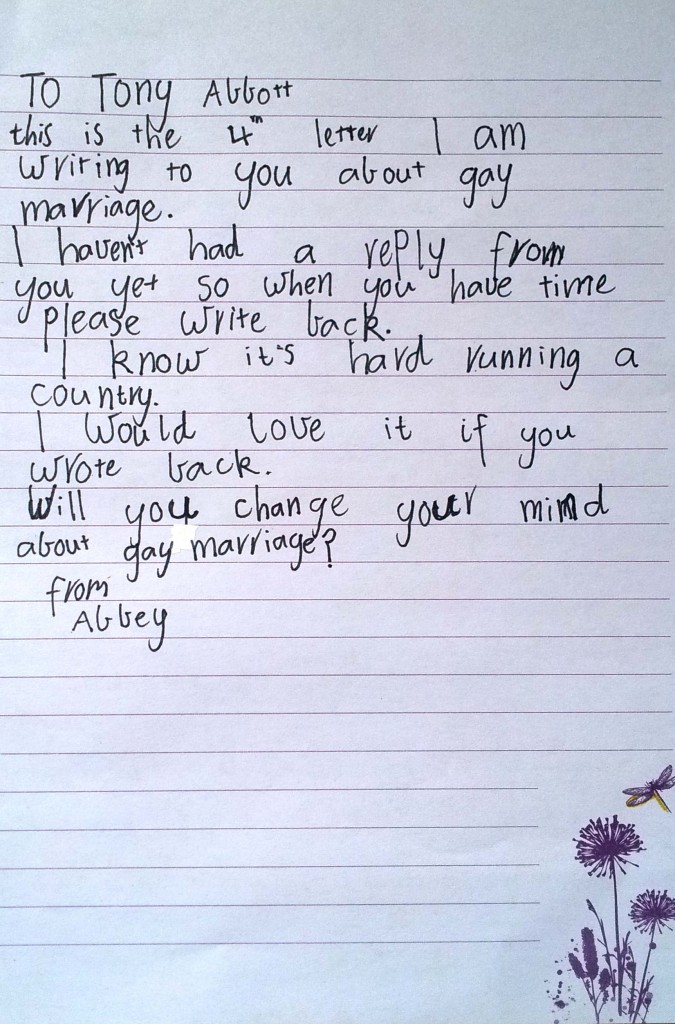 TO Tony Abbott
this is the 4th letter I am
writing to you about gay
marriage.
I haven't had a reply from
you yet so when you have time
please write back.
I know it's hard running a
country.
I would love it if you
wrote back.
Will you change your mind
about gay marriage?
from
Abbey